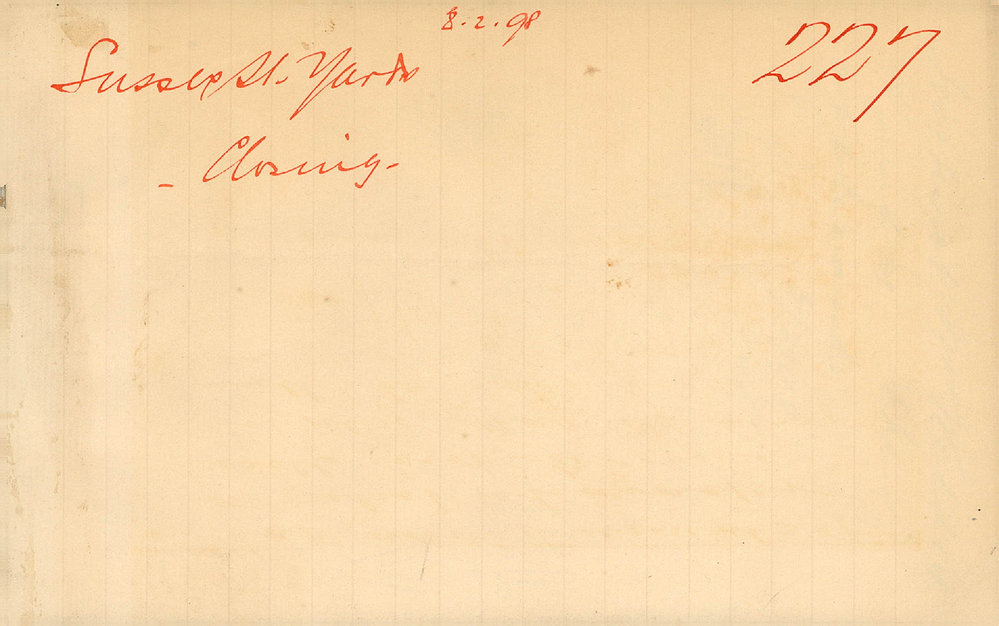 8.2.98
227
Sussex St. Yards
- Closing -